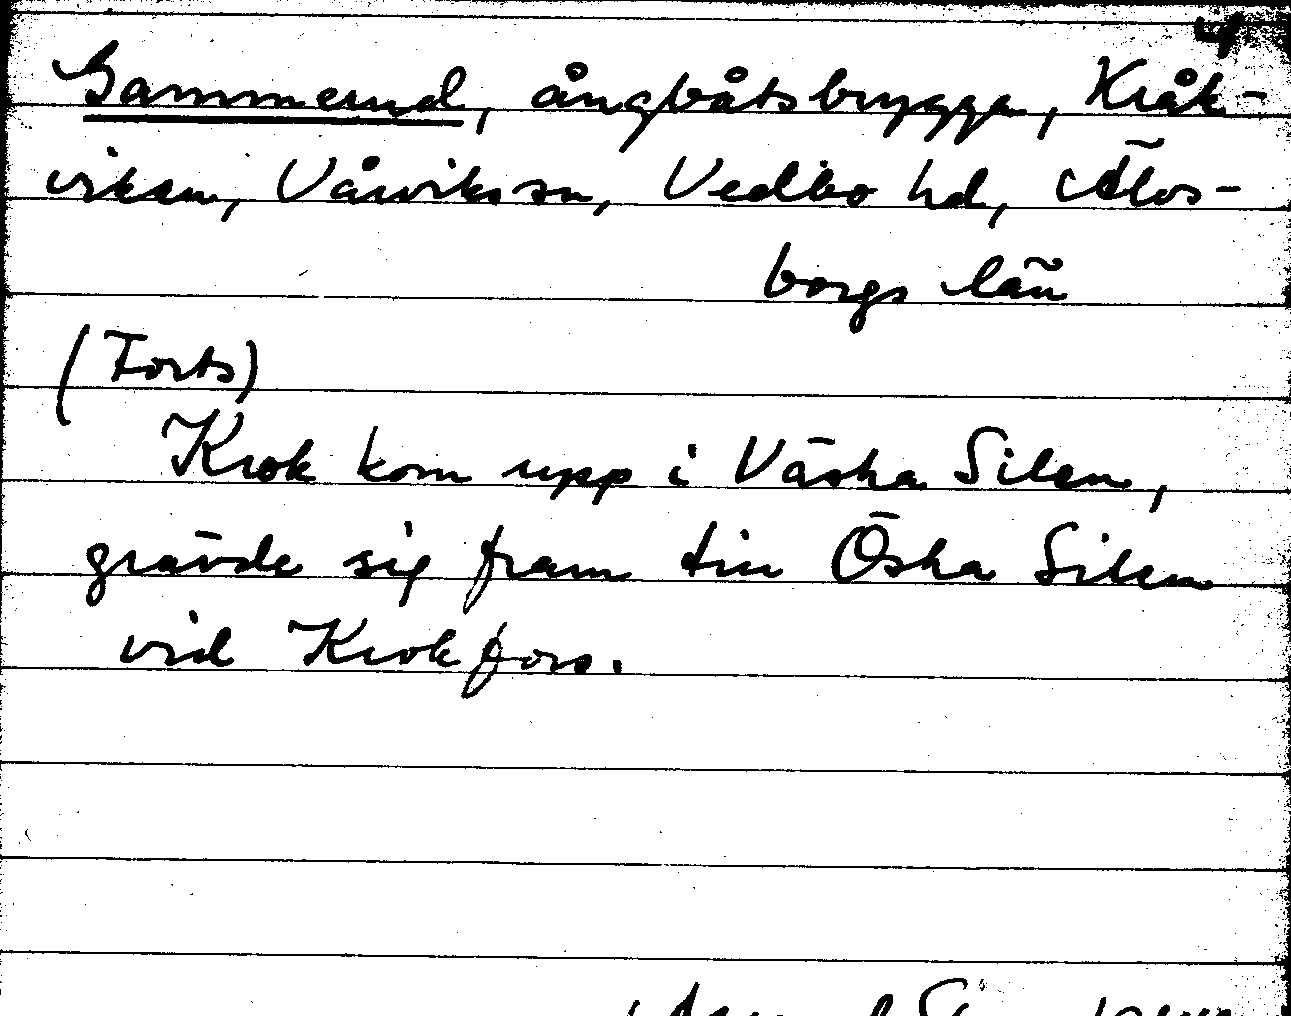 4
Gammerud, ångbåtsbrygga, Kråk-
viken, Vårviks sn, Vedbo hd, Älvs-
borgs län
(Forts)
Krok kom upp i Västra Silen,
grävde sig fram till Östra Silen
vid Krokfors.